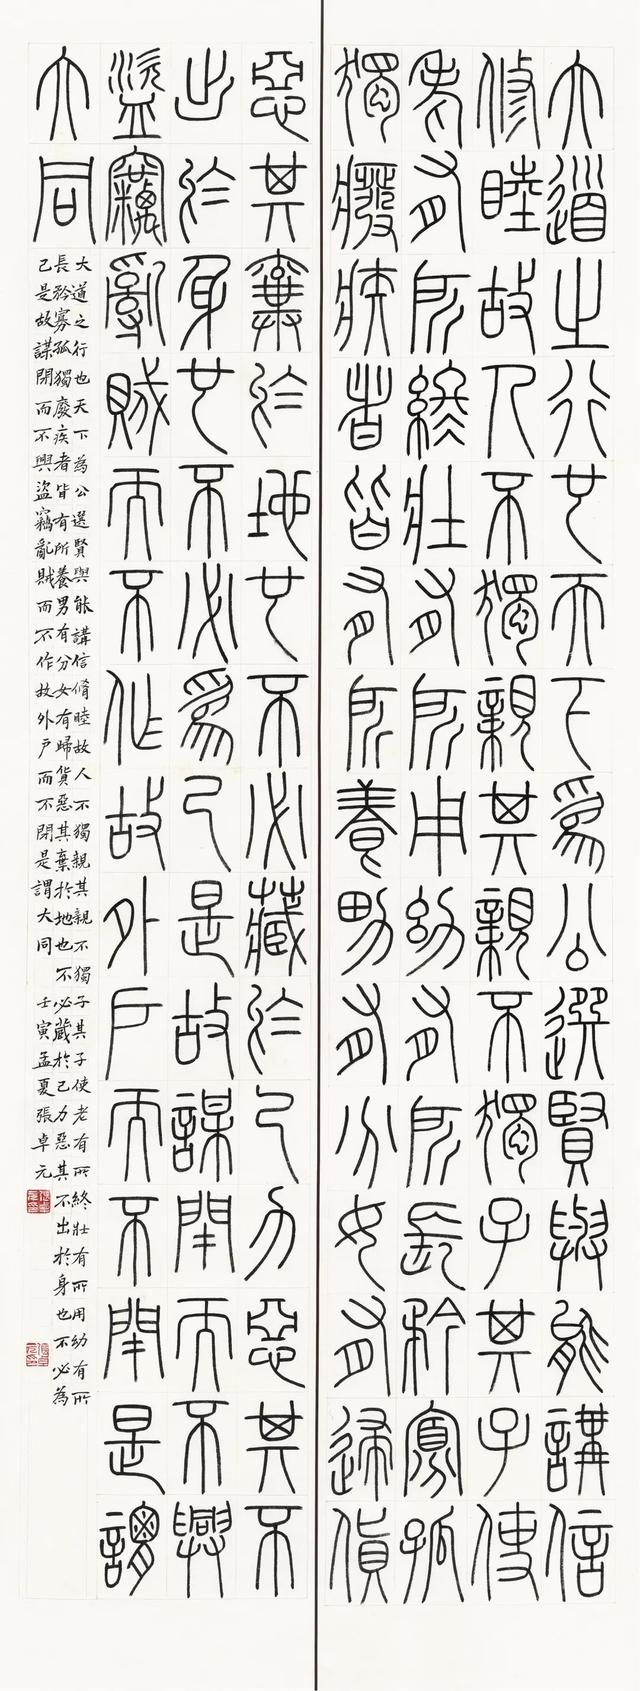 大道之行也天下為公選賢與能講信
修睦故人不獨親其親不獨子其子使
老有所終壯有所用幼有所長矜寡孤
獨廢疾者皆有所養男有分女有歸貨
惡其棄於地也不必藏於己力惡其不
出於身也不必爲己是故謀閉而不興
盜竊亂賊而不作故外戶而不閉是謂
大同
大道之行也天下為公選賢與能講信脩睦故人不獨親其親不獨子其子使老有所終壯有所用幼有所
長矜寡孤獨廢疾者皆有所養男有分女有歸貨惡其棄於地也不必藏於己力惡其不出於身也不必為
己是故謀閉而不興盜竊亂賊而不作故外戶而不閉是謂大同 壬寅孟夏張卓元